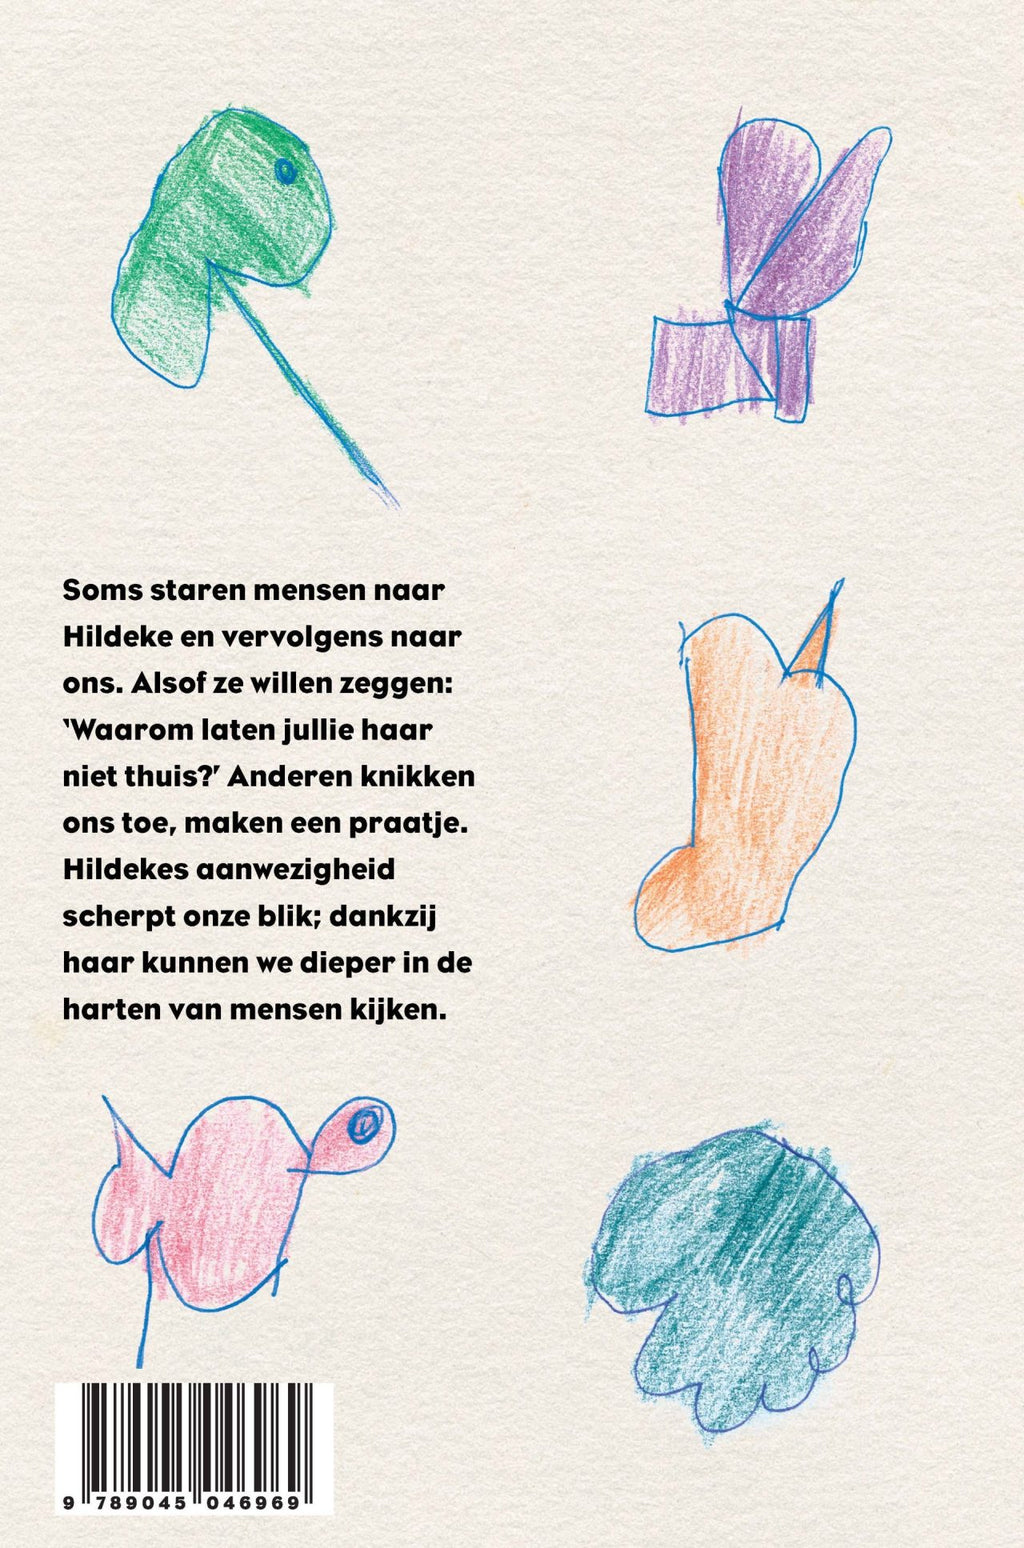 Soms staren mensen naar
Hildeke en vervolgens naar
ons. Alsof ze willen zeggen:
‘Waarom laten jullie haar
niet thuis?’ Anderen knikken
ons toe, maken een praatje.
Hildekes aanwezigheid
scherpt onze blik; dankzij
haar kunnen we dieper in de
harten van mensen kijken.
9 789045 046969